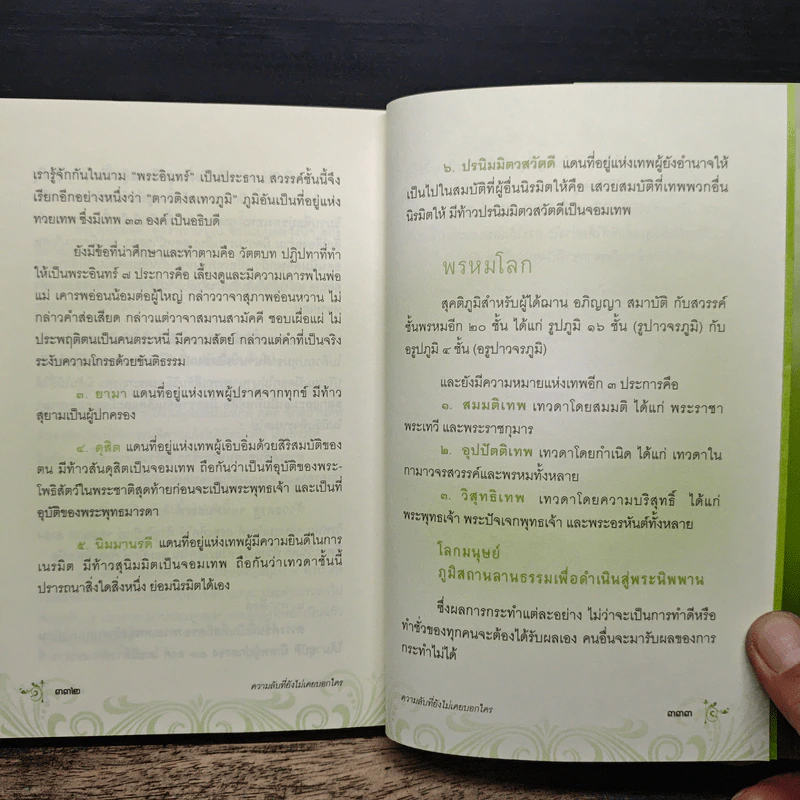 เรารู้จักกันในนาม "พระอินทร์" เป็นประธาน สวรรค์ชั้นนี้จึง
เรียกอีกอย่างหนึ่งว่า "ตาวติงสเทวภูมิ" ภูมิอันเป็นที่อยู่แห่ง
ทวยเทพ ซึ่งมีเทพ ๓๓ องค์ เป็นอธิบดี
ยังมีข้อที่น่าศึกษาและทำตามคือ วัตตบท ปฏิปทาที่ทำ
ให้เป็นพระอินทร์ ๗ ประการคือ เลี้ยงดูและมีความเคารพในพ่อ
แม่ เคารพอ่อนน้อมต่อผู้ใหญ่ กล่าววาจาสุภาพอ่อนหวาน ไม่
กล่าวคำส่อเสียด กล่าวแต่วาจาสมานสามัคคี ชอบเผื่อแผ่ ไม่
ประพฤติตนเป็นคนตระหนี่ มีความสัตย์ กล่าวแต่คำที่เป็นจริง
ระงับความโกรธด้วยขันติธรรม
๓. ยามา แดนที่อยู่แห่งเทพผู้ปราศจากทุกข์ มีท้าว
สุยามเป็นผู้ปกครอง
๔. ดุสิต แดนที่อยู่แห่งเทพผู้เอิบอิ่มด้วยสิริสมบัติของ
ตน มีท้าวสันดุสิตเป็นจอมเทพ ถือกันว่าเป็นที่อุบัติของพระ-
โพธิสัตว์ในพระชาติสุดท้ายก่อนจะเป็นพระพุทธเจ้า และเป็นที่
อุบัติของพระพุทธมารดา
๕. นิมมานรดี แดนที่อยู่แห่งเทพผู้มีความยินดีในการ
เนรมิต มีท้าวสุนิมมิตเป็นจอมเทพ ถือกันว่าเทวดาชั้นนี้
ปรารถนาสิ่งใดสิ่งหนึ่ง ย่อมนิรมิตได้เอง
๓๓๒
ความลับที่ยังไม่เคยบอกใคร
๖. ปรนิมมิตวสวัตดี แดนที่อยู่แห่งเทพผู้ยังอำนาจให้
เป็นไปในสมบัติที่ผู้อื่นนิรมิตให้คือ เสวยสมบัติที่เทพพวกอื่น
นิรมิตให้ มีท้าวปรนิมมิตวสวัตดีเป็นจอมเทพ
พรหมโลก
สุคติภูมิสำหรับผู้ได้ฌาน อภิญญา สมาบัติ กับสวรรค์
ชั้นพรหมอีก ๒๐ ชั้น ได้แก่ รูปภูมิ ๑๖ ชั้น (รูปาวจรภูมิ) กับ
อรูปภูมิ ๔ ชั้น (อรูปาวจรภูมิ)
และยังมีความหมายแห่งเทพอีก ๓ ประการคือ
๑. สมมติเทพ เทวดาโดยสมมติ ได้แก่ พระราชา
พระเทวี และพระราชกุมาร
๒. อุปปัตติเทพ เทวดาโดยกำเนิด ได้แก่ เทวดาใน
กามาวจรสวรรค์และพรหมทั้งหลาย
๓. วิสุทธิเทพ เทวดาโดยความบริสุทธิ์ ได้แก่
พระพุทธเจ้า พระปัจเจกพุทธเจ้า และพระอรหันต์ทั้งหลาย
โลกมนุษย์
ภูมิสถานลานธรรมเพื่อดำเนินสู่พระนิพพาน
ซึ่งผลการกระทำแต่ละอย่าง ไม่ว่าจะเป็นการทำดีหรือ
ทำชั่วของทุกคนจะต้องได้รับผลเอง คนอื่นจะมารับผลของการ
กระทำไม่ได้
ความลับที่ยังไม่เคยบอกใคร
๓๓๓